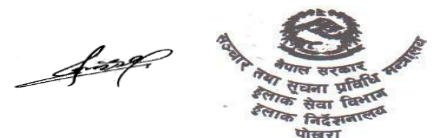 नेपाल सरकार
सञ्चार तथा सूचना प्रविधि मन्त्रालय
हुलाक सेवा विभाग
हुलाक निर्देशनालय
पोखरा